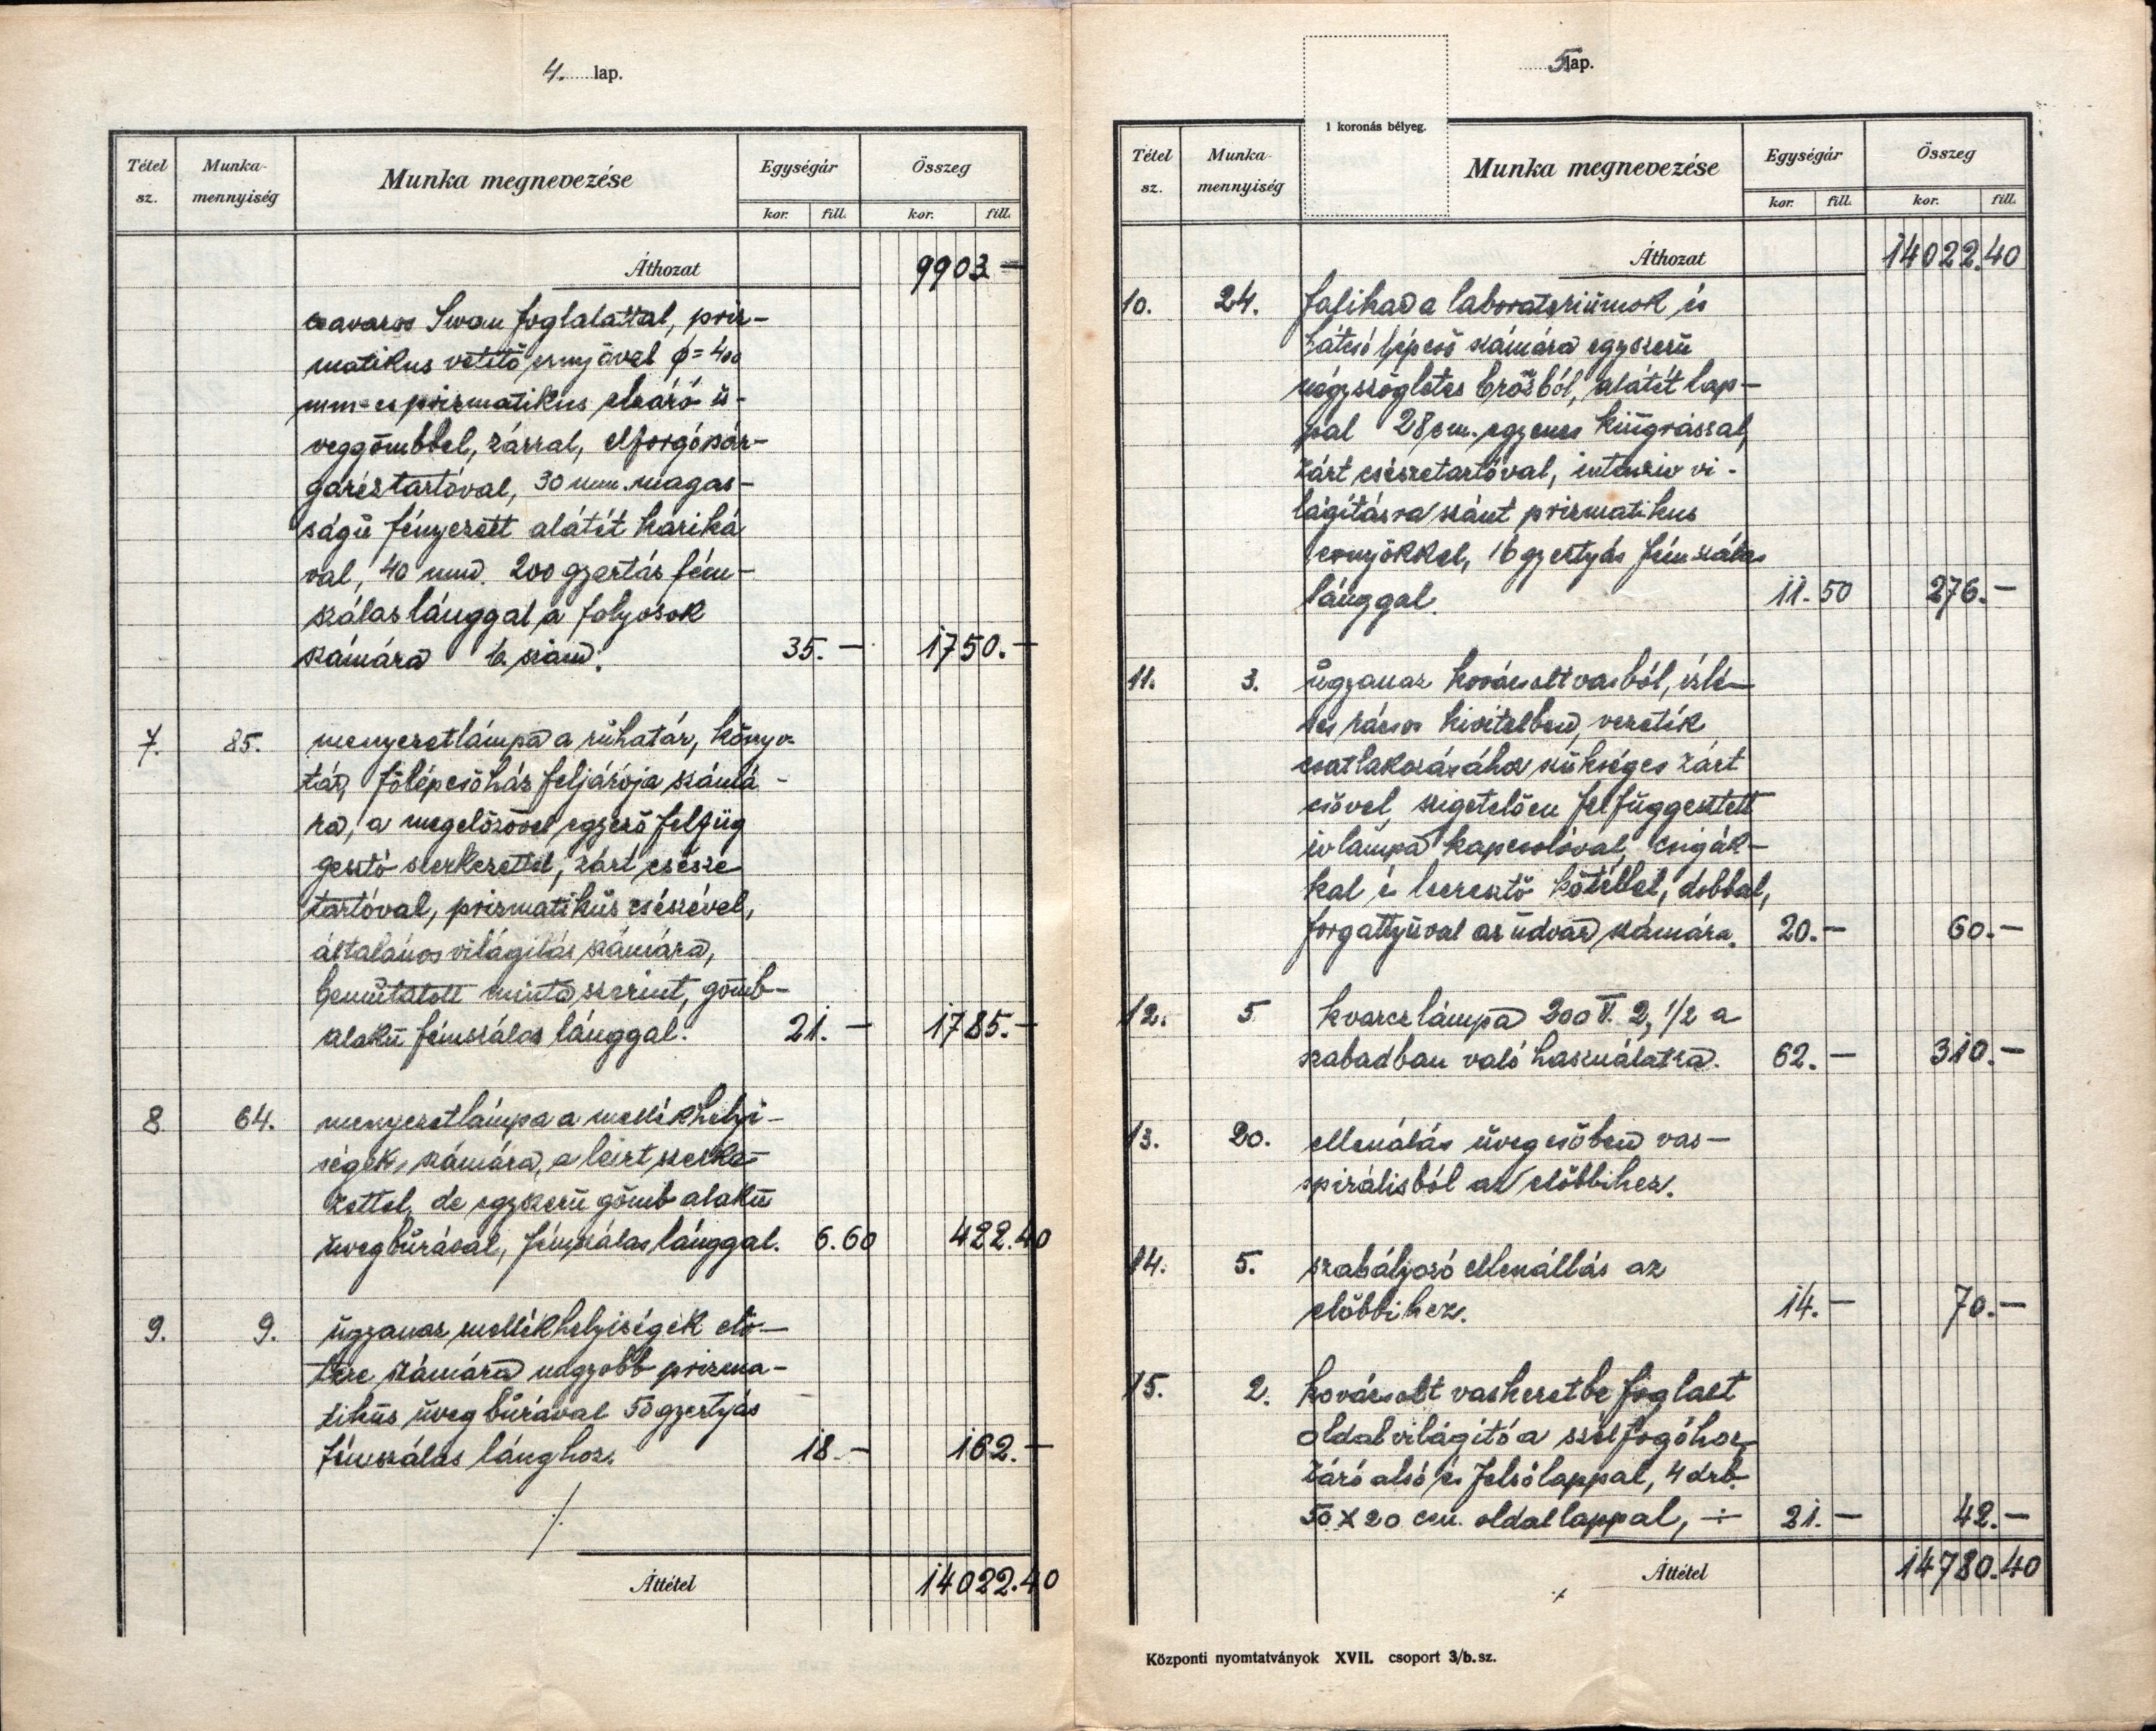 4. lap.
Tétel sz. Munka-mennyiség Munka megnevezése Egységár Összeg
kor. fill. kor. fill.
Áthozat 9903 —
csavaros Swan foglalattal, priz-
matikus vetítő ernyővel φ = 400
mm-es prizmatikus elzáró ü-
veggömbbel, zárral, elforgó
garéstartóval, 30 mm. magas-
ságú fényezett alátét hariká
val, 40 mm. 200 gyertás fém-
szálas lánggal a folyosok
számára 6. szám. 35. — 1750. —
7. 85. menyezetlámpa a rúhatár, könyv-
tár, főlépcsőház feljárója számá-
ra, a megelőzővel egyező felfüg
gesztő szerkezettel, zárt csésze
tartóval, prizmatikús csészével,
általános világitás számára,
bemútatott minta szerint, gömb-
alakú fémszálas lánggal. 21. — 1785. —
8 64. menyezetlámpa a mellékhelyi-
ségek számára, a leirt szerke-
zettel, de egyszerű gömb alakú
üvegbúrával, fémszálas lánggal. 6.60 422.40
9. 9. úgyanaz mellékhelyiségek elő-
tere számára nagyobb prizma-
tikús üveg búrával 50 gyertyás
fémszálas lánghoz. 18. — 162. —
Áttétel 14022.40
5 lap.
1 koronás bélyeg.
Tétel sz. Munka-mennyiség Munka megnevezése Egységár Összeg
kor. fill. kor. fill.
Áthozat 14022.40
10. 24. falikar a laboratoriúmok és
hátsó lépcső számára egyszerű
négyszögletes bronzból, alátét lap-
pal 28 cm. egyenes kiúgrással,
zárt csészetartóval, intenziv vi-
lágításra szánt prizmatikus
ernyőkkel, 16 gyertyás fémszálas
lánggal. 11.50 276. —
11. 3. úgyanaz kovácsolt vasból, izlé-
ses rácsos kivitelben, vezeték
csatlakozásához szükséges zárt
csővel, szigetelően felfüggesztett
ivlámpa kapcsolóval, csigák-
kal és leeresztő kötéllel, dobbal,
forgattyúval az údvar számára. 20. — 60. —
12. 5 kvarczlámpa 200 V. 2, 1/2 a
szabadban való használatra. 62. — 310. —
13. 20. ellenálás üvegcsőben vas-
spirálisból az előbbihez.
14. 5. szabályozó ellenállás az
előbbihez. 14. — 70. —
15. 2. kovácsolt vaskeretbe foglalt
oldalvilágító a szélfogóhoz,
záró alsó és felsőlappal, 4 drb.
50 X 20 cm. oldallappal, ÷ 21. — 42. —
Áttétel 14780.40
Központi nyomtatványok XVII. csoport 3/b. sz.